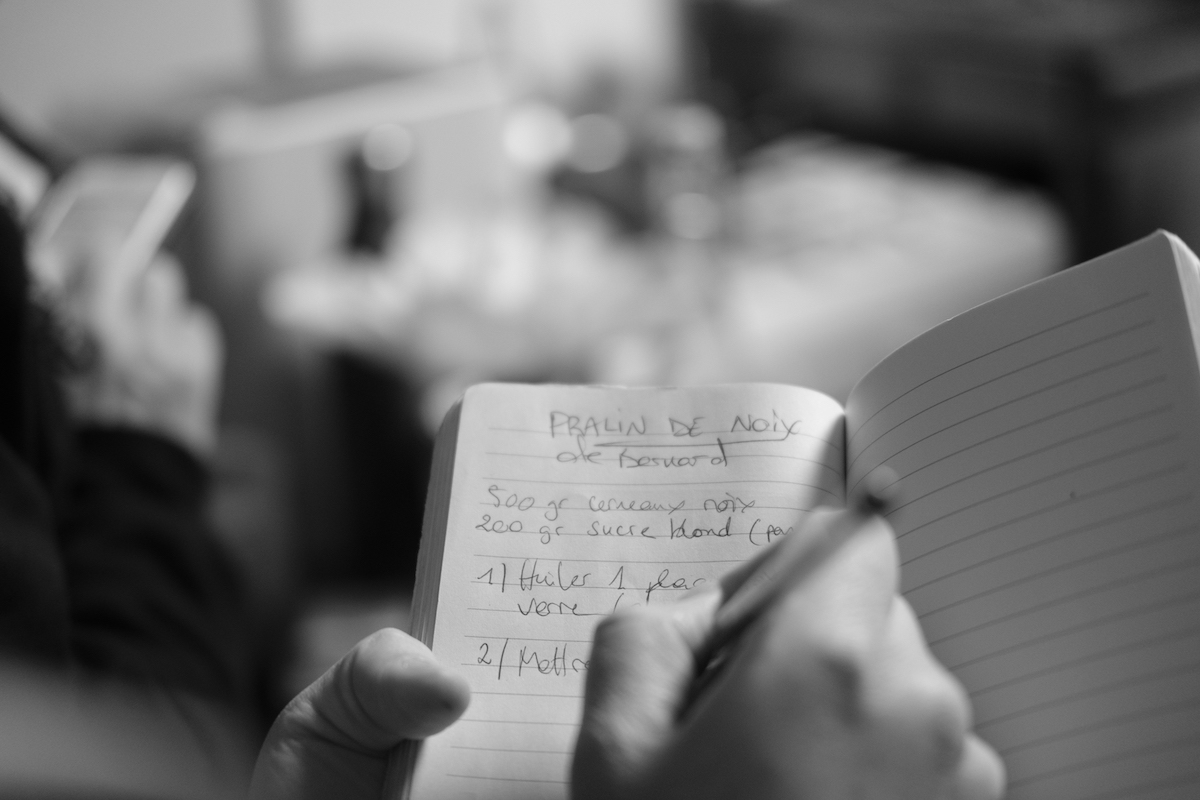 PRALIN DE NOIX
de Bernard
500 gr cerneaux noix
200 gr sucre blond (pa
1) Huiler 1 plac
verre (
2) Mettre